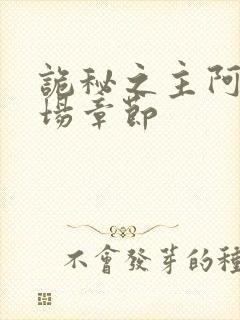 詭秘之主阿
場章節
不會發芽的種